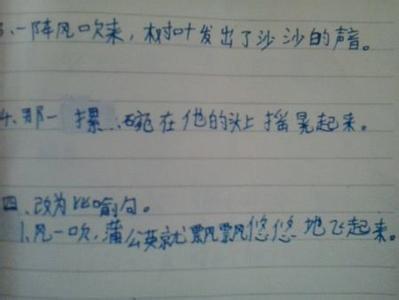 3、一阵风吹来,树叶发出了沙沙的声音。
4、那一摞碗在他的头上摇晃起来。
四、改为比喻句。
1、风一吹,蒲公英就飘飘悠悠地飞起来。